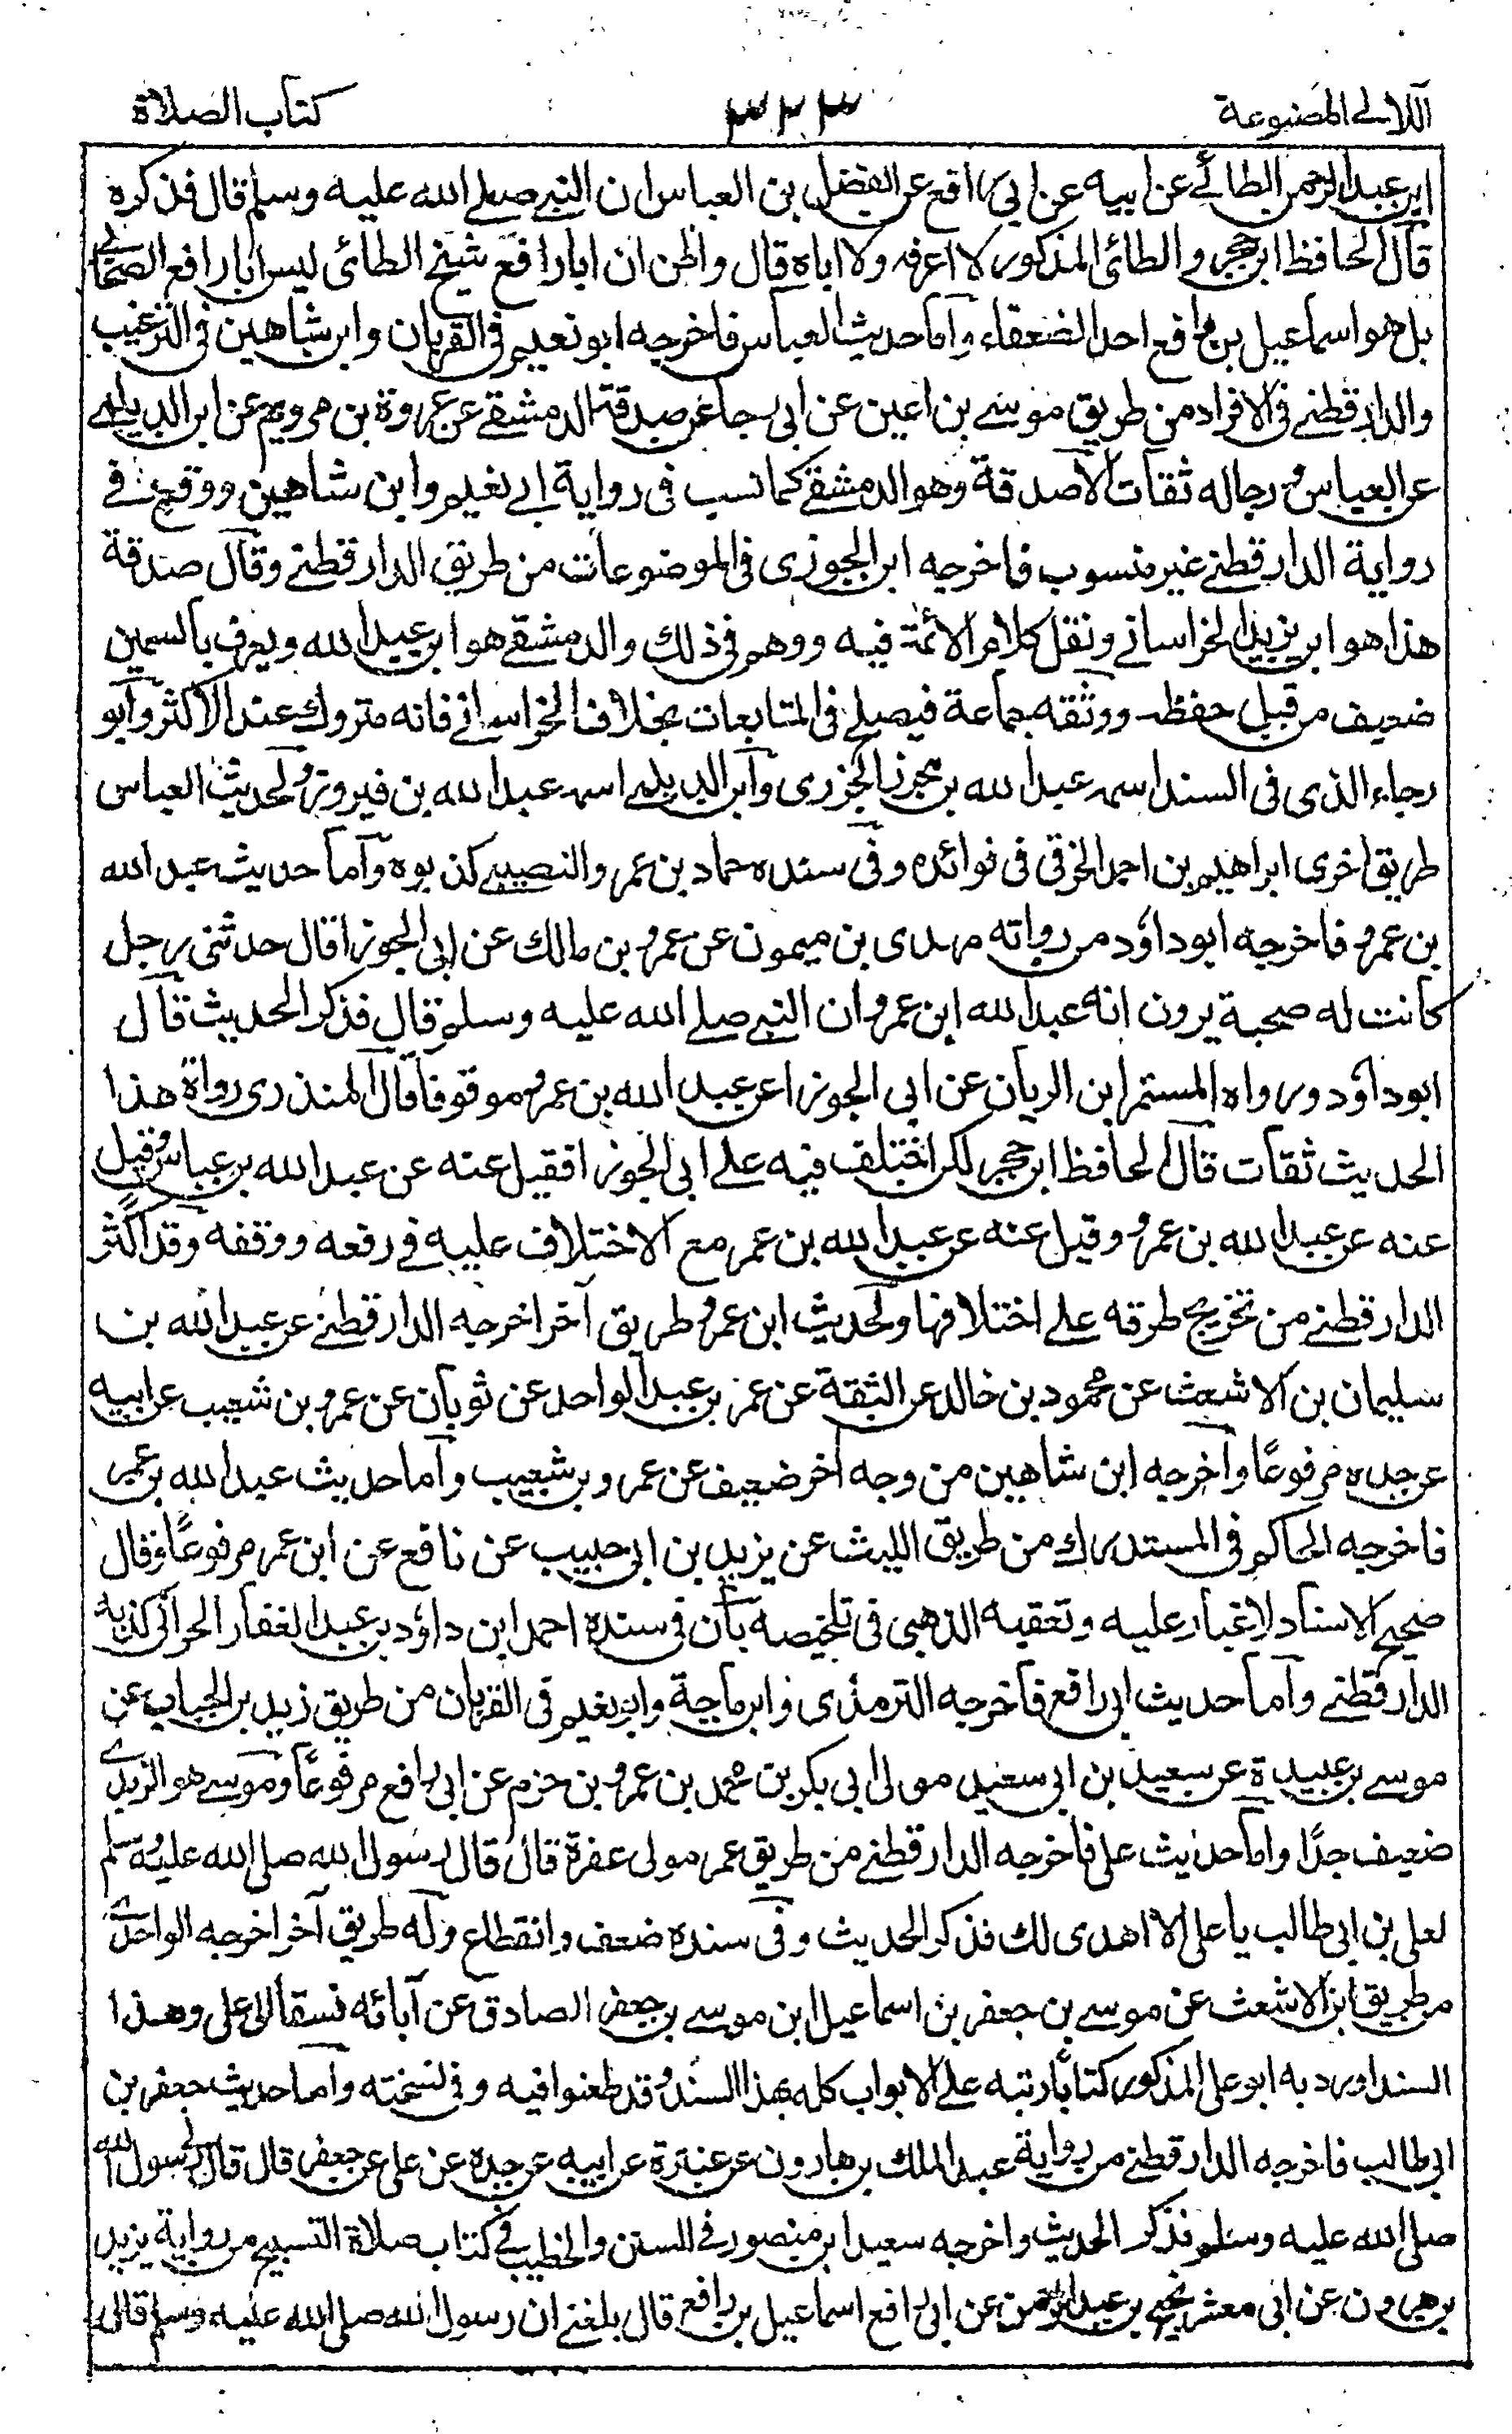 اللالى المصنوعة
٣٢٣
كتاب الصلاة
ابن عبد الرحمن الطائى عن ابيه عن ابى رافع عن الفضل بن العباس ان النبى صلى الله عليه وسلم قال فذكره
قال الحافظ ابن حجر والطائى المذكور لا اعرفه ولا اباه قال واظن ان ابا رافع شيخ الطائى ليس ابا رافع الصحابى
بل هو اسماعيل بن رافع احد الضعفاء واما حديث العباس فاخرجه ابو نعيم فى القربان وابن شاهين فى الترغيب
والدارقطنى فى الافراد من طريق موسى بن اعين عن ابى رجا عن صدقة الدمشقى عن عروة بن رويم عن ابن الديلمى
عن العباس ورجاله ثقات الا صدقة وهو الدمشقى كما نسب فى رواية ابى نعيم وابن شاهين ووقع فى
رواية الدارقطنى غير منسوب فاخرجه ابن الجوزى فى الموضوعات من طريق الدارقطنى وقال صدقة
هذا هو ابن يزيد الخراسانى ونقل كلام الائمة فيه ووهم فى ذلك والدمشقى هو ابن عبد الله ويعرف بالسمين
ضعيف من قبل حفظه ووثقه جماعة فيصلح فى المتابعات بخلاف الخراسانى فانه متروك عند الاكثر وابو
رجاء الذى فى السند اسمه عبد الله بن محرز الجزرى وابن الديلمى اسمه عبد الله بن فيروز ولحديث العباس
طريق اخرى ابراهيم بن احمد الخرقى فى فوائده وفى سنده حماد بن عمرو النصيبى كذبوه واما حديث عبد الله
بن عمرو فاخرجه ابو داؤد من رواته مهدى بن ميمون عن عمرو بن مالك عن ابى الجوزا قال حدثنى رجل
كانت له صحبة يرون انه عبد الله ابن عمرو ان النبى صلى الله عليه وسلم قال فذكر الحديث قال
ابو داؤد ورواه المستمر ابن الريان عن ابى الجوزا عن عبد الله بن عمرو موقوفا قال المنذرى رواة هذا
الحديث ثقات قال الحافظ ابن حجر لكن اختلف فيه على ابى الجوزا فقيل عنه عن عبد الله بن عباس وقيل
عنه عن عبد الله بن عمرو وقيل عنه عن عبد الله بن عمر مع الاختلاف عليه فى رفعه ووقفه وقد اكثر
الدارقطنى من تخريج طرقه على اختلافها ولحديث ابن عمرو طريق آخر اخرجه الدارقطنى عن عبد الله بن
سليمان بن الاشعث عن محمود بن خالد عن الثقة عن عمر بن عبد الواحد عن ثوبان عن عمرو بن شعيب عن ابيه
عن جده مرفوعًا واخرجه ابن شاهين من وجه آخر ضعيف عن عمرو بن شعيب واما حديث عبد الله بن عمر
فاخرجه الحاكم فى المستدرك من طريق الليث عن يزيد بن ابى حبيب عن نافع عن ابن عمر مرفوعًا وقال
صحيح الاسناد لا غبار عليه وتعقبه الذهبى فى تلخيصه بان فى سنده احمد ابن داؤد بن عبد الغفار الحرانى كذبه
الدارقطنى واما حديث ابى رافع فاخرجه الترمذى وابن ماجة وابو نعيم فى القربان من طريق زيد بن الحباب عن
موسى بن عبيدة عن سعيد بن ابى سعيد مولى ابى بكر بن محمد بن عمرو بن حزم عن ابى رافع مرفوعًا وموسى هو الربذى
ضعيف جدًا واما حديث على فاخرجه الدارقطنى من طريق عمر مولى عفرة قال قال رسول الله صلى الله عليه وسلم
لعلى بن ابى طالب يا على الا اهدى لك فذكر الحديث وفى سنده ضعف وانقطاع وله طريق آخر اخرجه الواحدى
من طريق ابن الاشعث عن موسى بن جعفر بن اسماعيل ابن موسى بن جعفر الصادق عن آبائه نسقا الى على وهذا
السند اورد به ابو على المذكور كتابًا رتبه على الابواب كله بهذا السند وقد طعنوا فيه وفى نسخته واما حديث جعفر بن
ابى طالب فاخرجه الدارقطنى من رواية عبد الملك بن هارون عن عنترة عن ابيه عن جده عن على عن جعفر قال قال لى رسول الله
صلى الله عليه وسلم فذكر الحديث واخرجه سعيد ابن منصور فى السنن والخطيب فى كتاب صلاة التسبيح من رواية يزيد
بن هرون عن ابى معشر نجيح بن عبد الرحمن عن ابى رافع اسماعيل بن رافع قال بلغنى ان رسول الله صلى الله عليه وسلم قال